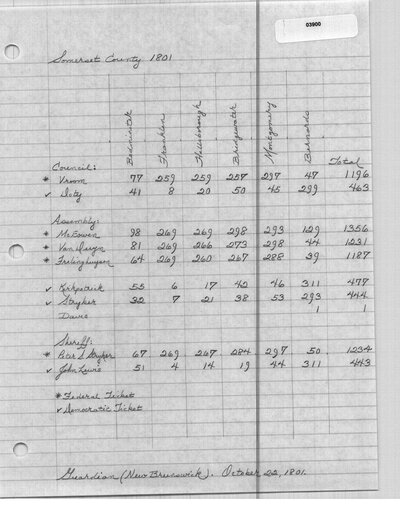 03900
Somerset County 1801
Bedminster Franklin Hillsborough Bridgewater Montgomery Bernards Total
Council:
* Vroom 77 259 259 257 297 47 1196
✓ Doty 41 8 20 50 45 299 463
Assembly:
* McEowen 98 269 269 298 293 129 1356
* Van Duyn 81 269 266 273 298 44 1231
* Frelinghuysen 64 269 260 267 288 39 1187
✓ Kirkpatrick 55 6 17 42 46 311 477
✓ Stryker 32 7 21 38 53 293 444
Davis 1 1
Sheriff:
* Peter D Stryker 67 269 267 284 297 50 1234
✓ John Lewis 51 4 14 19 44 311 443
* Federal Ticket
✓ Democratic Ticket
Guardian (New Brunswick). October 22, 1801.